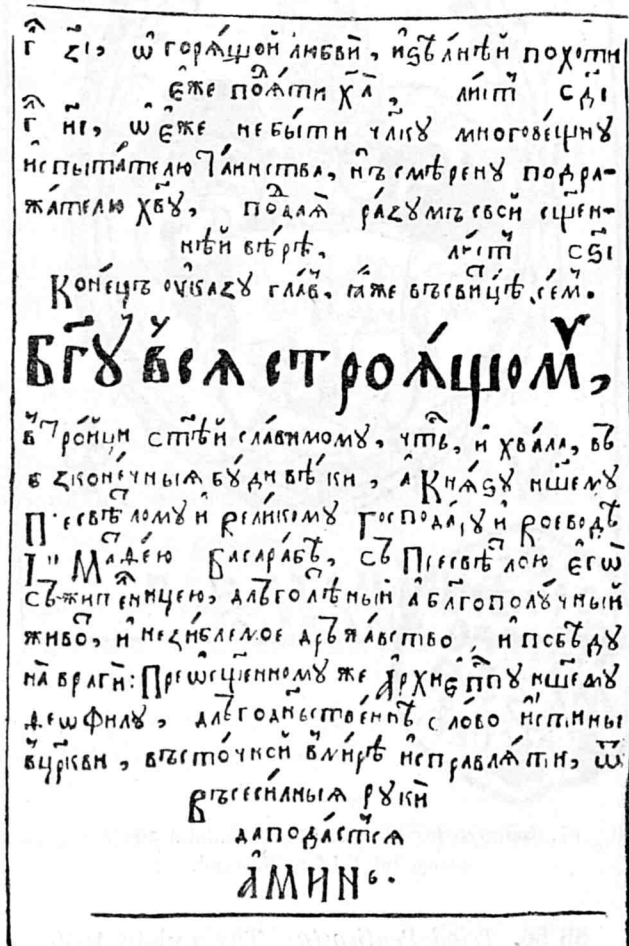 гл҃ ꙁ҃і, ѡ҆ горѧ́щой любвѝ, и҆ ѕѣ́лнѣй похоти
є҆́же поѧ́ти хл҃а, ли́ст сд҃і
гл҃ и҃і, ѡ҆ є҆́же не бы́ти чл҃ку многовѣщну
и҆спыта́телю таинства, нъ смѣ́рену подра-
жа́телю хв҃у, пода́ѧ ра́ꙁумъ свой сщ҃ен-
нѣ́й вѣ́рѣ, ли́ст сѕ҃і
Коне́цъ ᲂу҆каꙁу гла́в, ꙗ҆́же въ свитцѣ сем.
Бг҃у всѧ строѧ́щомꙋ,
в тро́йци ст҃ѣй сла́вимому, чть, и҆ хвала̀, въ
беꙁконе́чныѧ бꙋ́ди вѣ́ки, а҆ Кнѧ́ѕу нш҃ему
Пресвѣтлому и҆ Вели́кому Господа́рꙋ и҆ Воеводѣ
Іѡ Матѳе́ю Басара́бѣ, съ Пресвѣтлою є҆гѡ̀
съжител҃ницею, дльголѣ́тный а҆ бл҃гополꙋ́чный
живо́т, и҆ неꙁи́блемое дрьжа́вство, и҆ побѣ́ду
на врагѝ: Преѡ҆сщ҃е́нному же А҆рхїеп҃пꙋ нш҃ему
Ѳеѡфилу, дльгоде́нствєннѣ сло́во и҆́стины
в цр҃кви, въсто́чной в ми́рѣ и҆справлѧ́ти, ѿ
Въсеси́лныѧ рꙋкѝ
да пода́стсѧ
А҆МИНЬ.